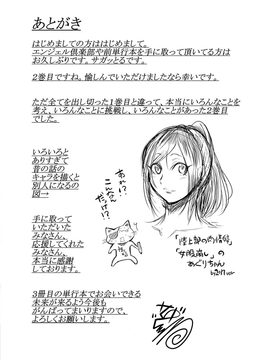 あとがき
はじめましての方ははじめまして。
エンジェル倶楽部や前単行本を手に取って頂いてる方は
お久しぶりです。サガッとるです。
2巻目ですね。愉しんでいただけましたなら幸いです。
ただ全てを出し切った1巻目と違って、本当にいろんなことを
考え、いろんなことに挑戦し、いろんなことがあった2巻目
でした。
いろいろと
ありすぎて
昔の話の
キャラ描くと
別人になるの
図→
あれ!?
こんなん
だっけ!?
手に取って
いただいた
みなさん、
応援してくれた
みなさん、
本当に感謝
しております。
「陸上部の
」
「女股崩し」の
めぐりちゃん
3冊目の単行本でお会いできる
未来が来るよう今後も
がんばってまいりますので、
よろしくお願いします。